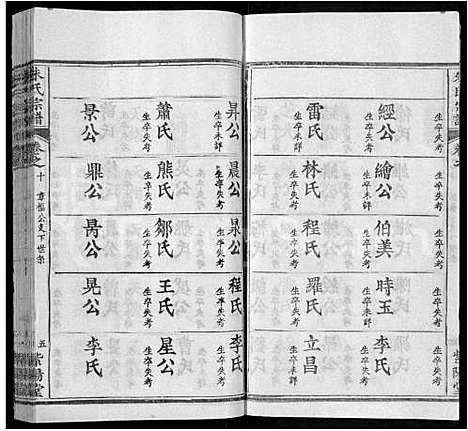 經公 生卒失考
繪公 生卒失考
伯美 生卒失考
時玉 生卒失考
李氏 生卒失考
雷氏 生卒未詳
林氏 生卒失考
程氏 生卒失考
羅氏 生卒未詳
立昌 生卒失考
昇公 生卒未詳
晨公 生卒失考
公 生卒失考
程氏 生卒失考
李氏 生卒失考
蕭氏 生卒失考
熊氏 生卒失考
鄒氏 生卒失考
王氏 生卒失考
星公 生卒失考
景公
鼎公
公
晃公
李氏
朱氏宗譜
卷之
十
公支下世系
五
紫陽堂